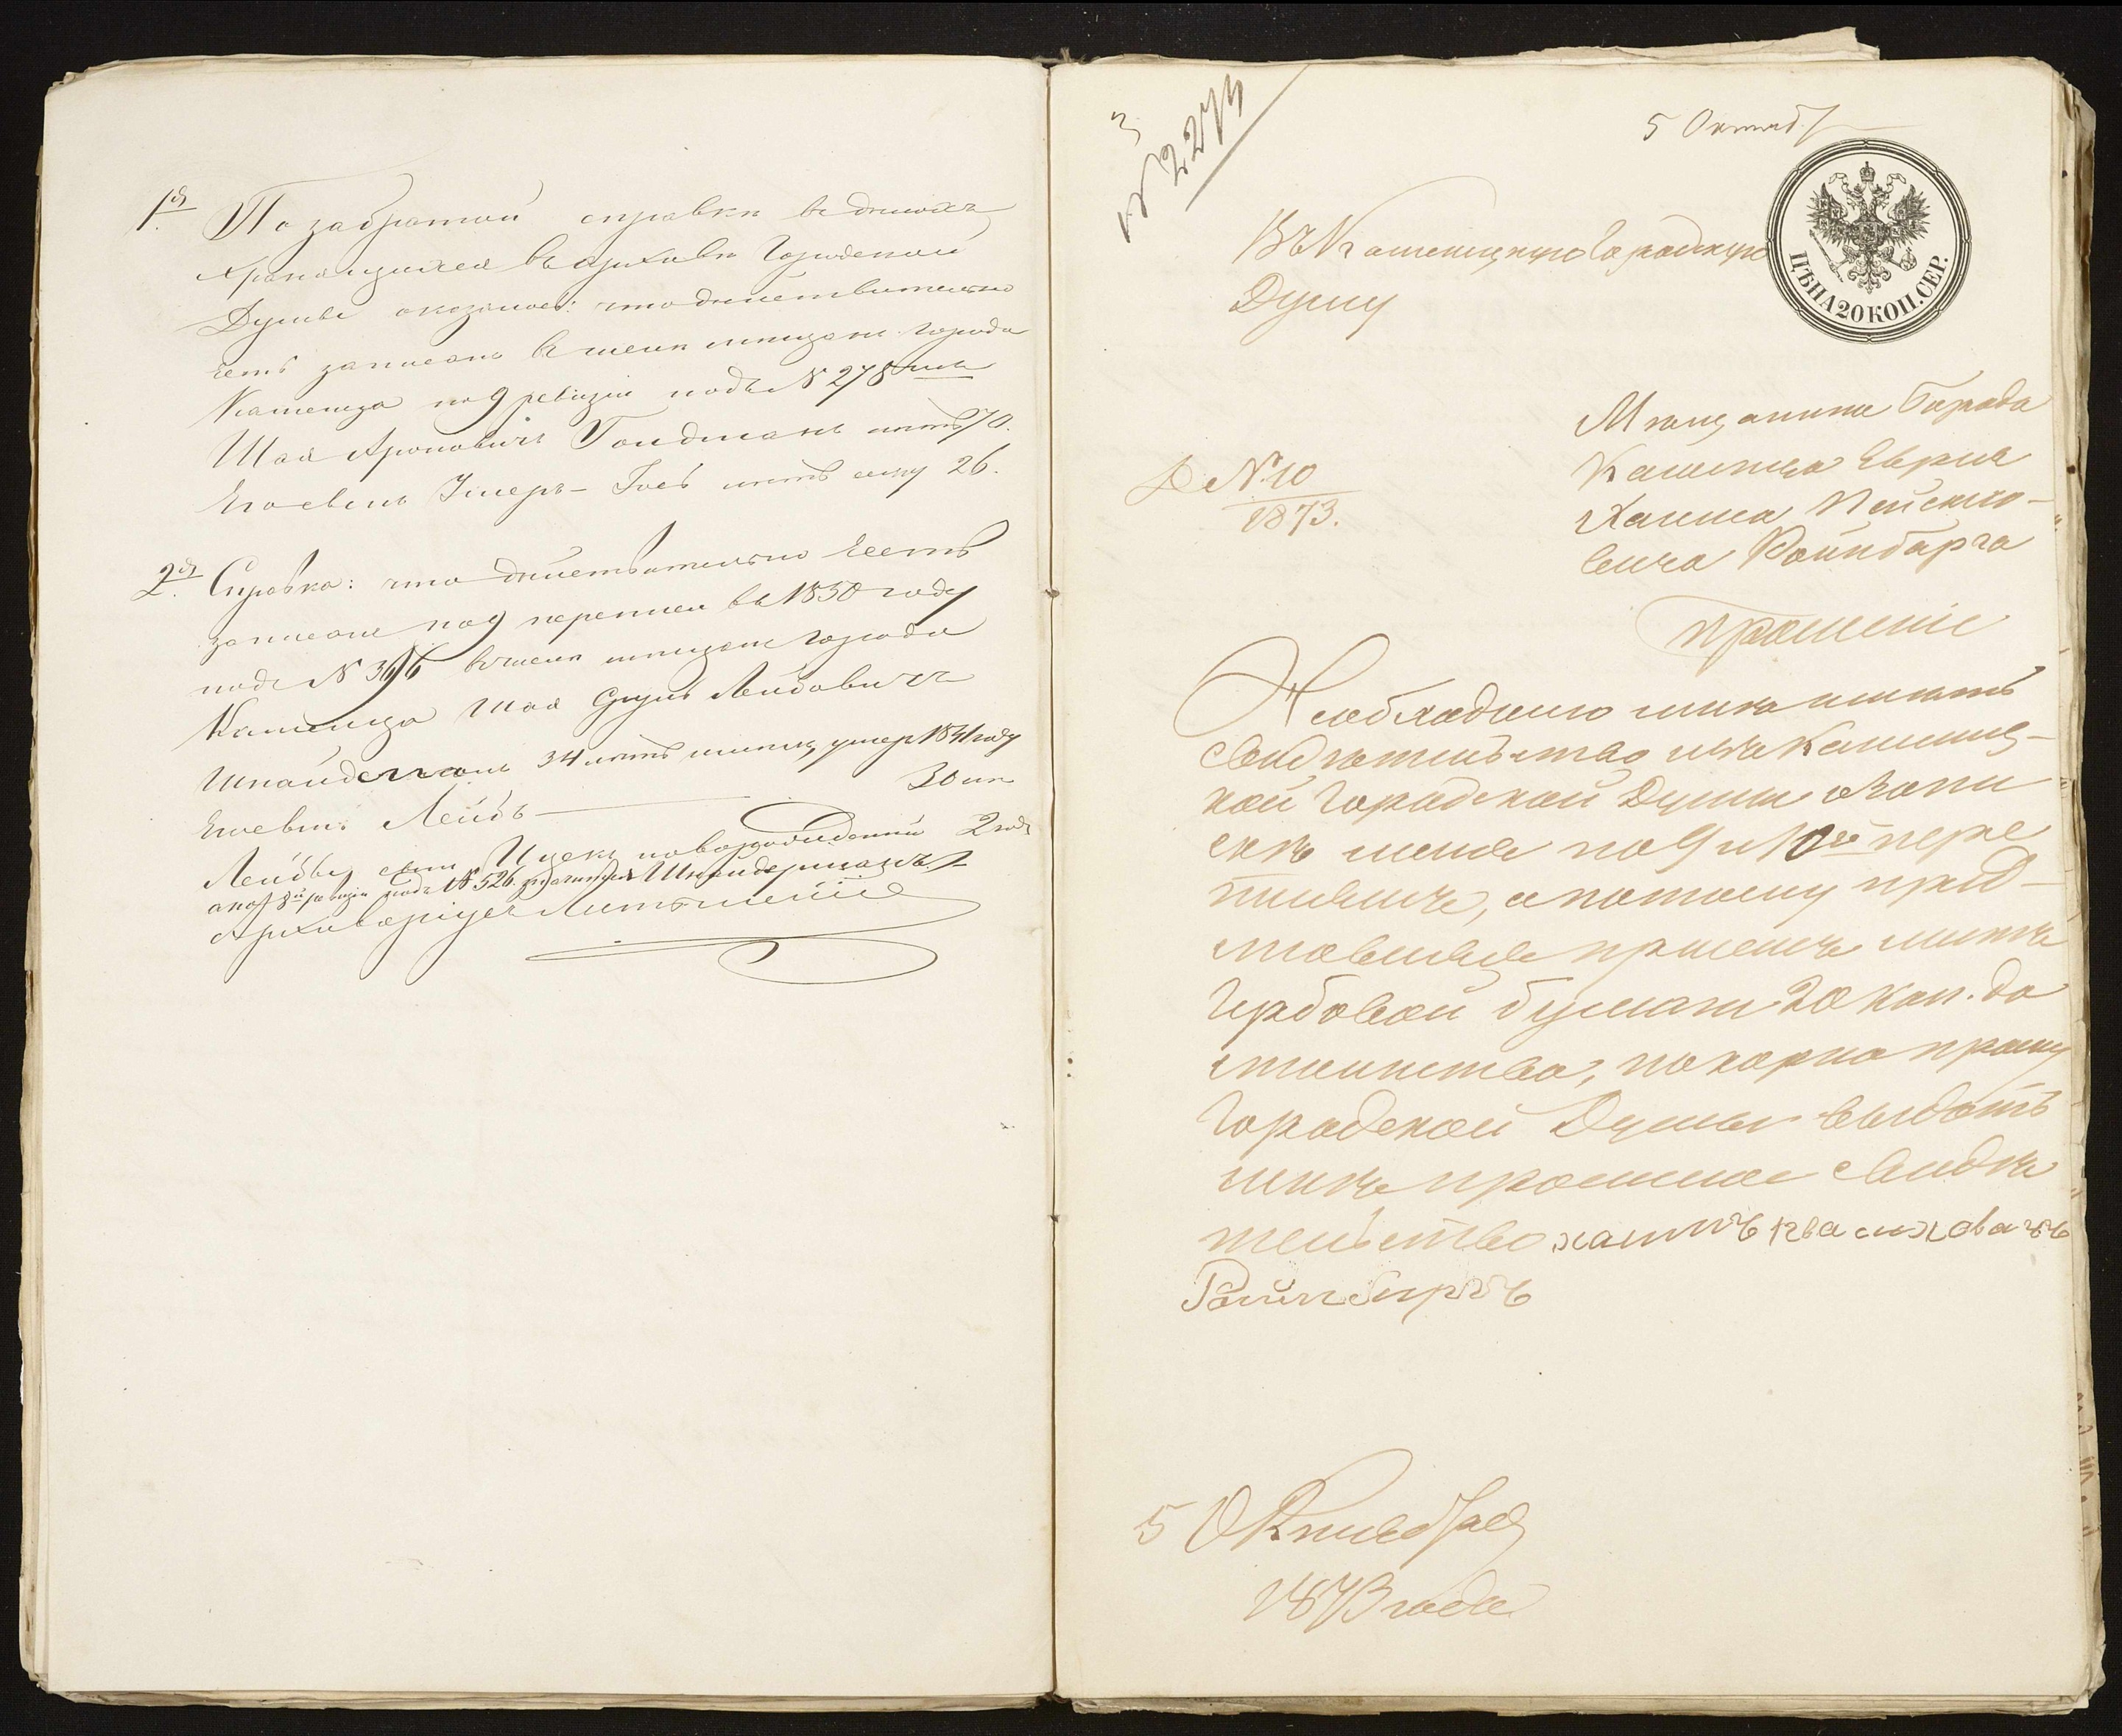 1.й По забратой справки въ дѣлахъ
хранащихся въ архивѣ Городской
Думы оказалось: что действительно
есть записанъ въ числѣ мѣщанъ города
Каменца по 9 ревизіи подъ № 278
Шая Ароновичъ Гольдманъ лѣтъ 70.
Его сынъ Умеръ- Іось лѣтъ ему 26.
2.й Справка: что дѣйствительно Есть
записанъ по 9 переписи въ 1850 году
подъ № 396 въ числѣ мѣщанъ города
Каменца Шая Сруль Лейбовичъ
Шнайдерманъ 34 лѣтъ умер 1841 году
Его сынъ Лейбъ 30 лѣ
Лейбы сынъ Ицекъ новорожденый 2 годъ
а по 8й ревизіи подъ № 526 Шнайдерманъ
Архиваріусъ
3
№ 2273
5 Октяб
Въ Каменецкую Городскую
Думу
ЦѢНА 20 КОП. СЕР.
Мѣщанина Города
Каменца Еврея
Хаима
вича Файнбарга
Д № 10
1873.
прошеніе
Необходимо мнѣ имѣть
свидѣтельство изъ Каменец-
кой Городской Думы о запи
скѣ меня по 9 и 10й пере
писямъ, а потому пред-
ставляя при семъ листъ
Гербовой бумаги 20 коп. до
стоинства, покорно прошу
Городской Думы выдать
мнѣ просимое свидѣ
тельство хаимъ
5 Октября
1873 года